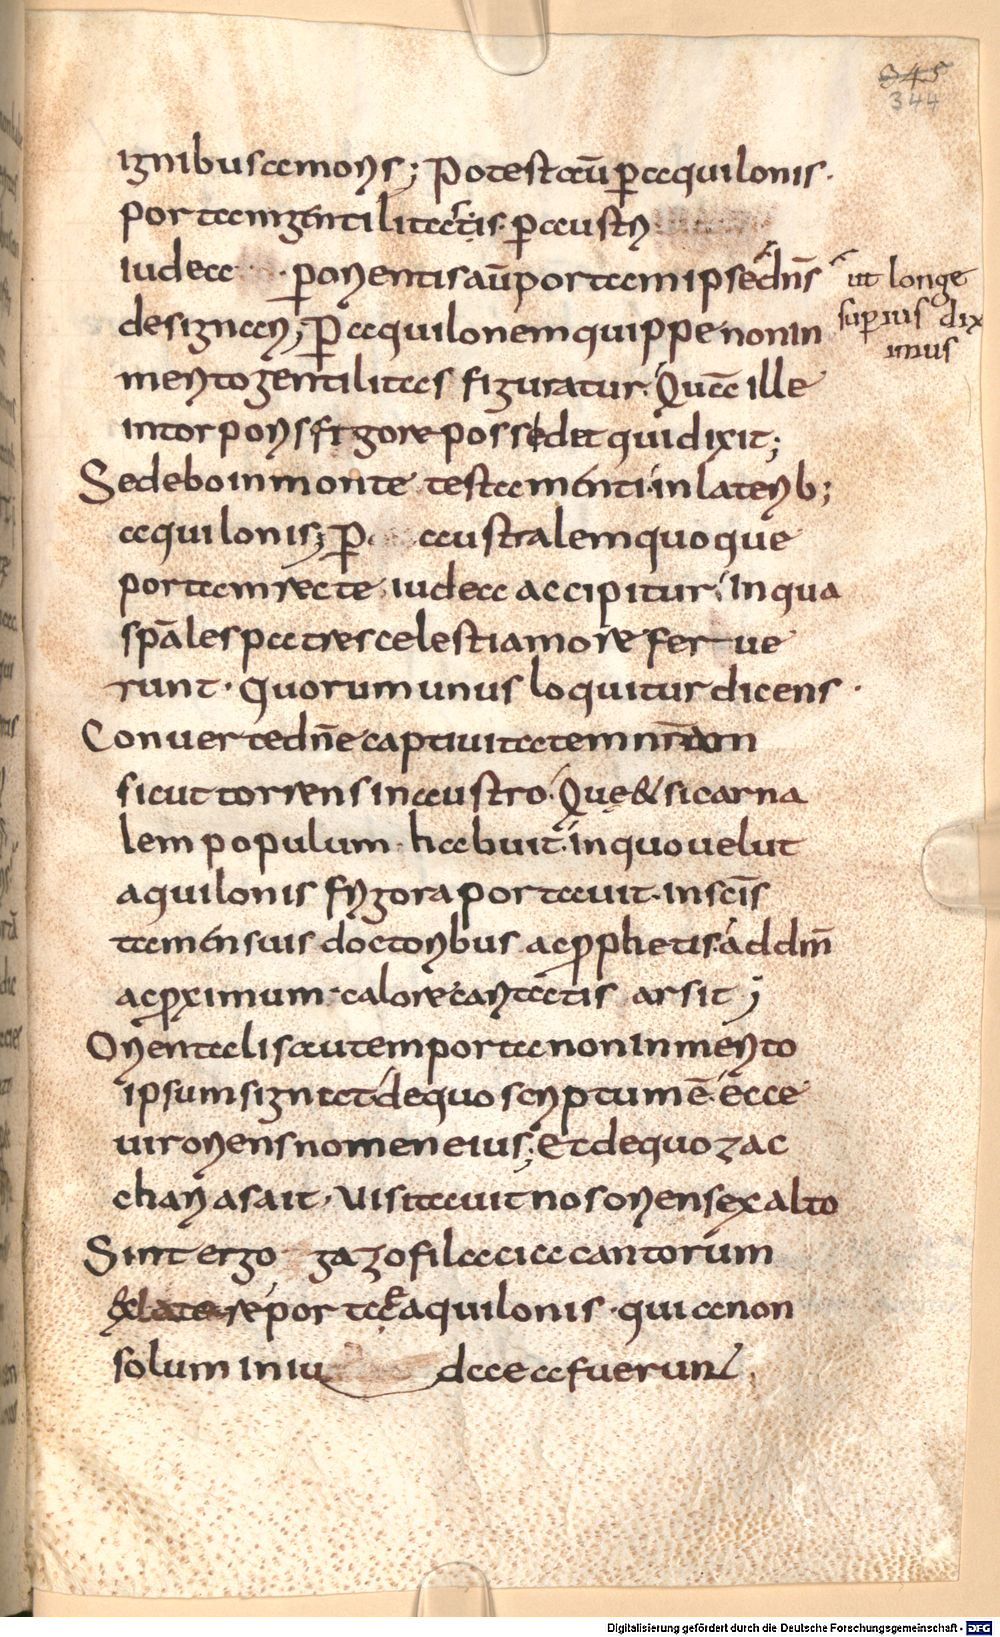 345
344
ignibus amoris; Potest aū p̄ aquilonis.
portam gentilitatis. p̄ austri
iudea p̄ orientis aū portam ipse dn̄s
ut longe
superius dix
imus
designari; P̄ aquilonem quippe non in
merito gentilitas figuratur. Quā ille
in torporis frigore possedit qui dixit;
Sedebo in monte testamenti. in laterib;
aquilonis; P̄ australem quoque
portam recte iudea accipitur. In qua
sp̄ales patres celesti amore ferue
runt. quorum unus loquitur dicens.
Conuerte dn̄e captiuitatem nr̄am
sicut torrens in austro. Quę & si carna
lem populum habuit. in quo uelut
aquilonis frigora portauit. in sc̄is
tamen suis doctoribus ac prophetis. ad dm̄
ac proximum. calore caritatis arsit;
Orientalis autem porta non inmerito
ipsum signat de quo scriptum ē. ecce
uir oriens nomen eius; Et de quo zac
charias ait. Uisitauit nos oriens ex alto
Sint ergo gazofilacia cantorum
& latere portae aquilonis. quia non
solum in iudaea fuerunt
Digitalisierung gefördert durch die Deutsche Forschungsgemeinschaft - DFG